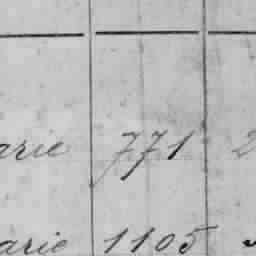 arie 771 2
arie 1105